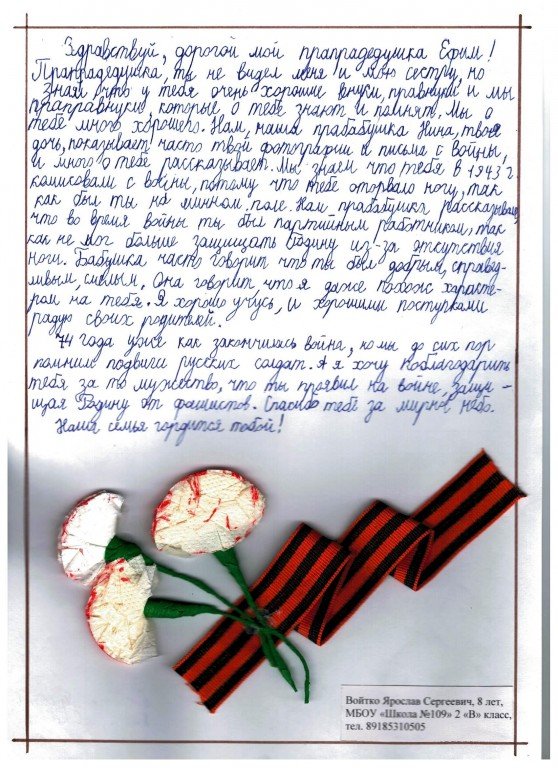 Здравствуй, дорогой мой прапрадедушка Ефим!
Прапрадедушка, ты не видел меня и мою сестру, но
знай, что у тебя очень хорошие внуки, правнуки и мы
праправнуки, которые о тебе знают и помнят. Мы о
тебе много хорошего. Нам, наша прабабушка Нина, твоя
дочь, показывает часто твои фотографии и письма с войны,
и много о тебе рассказывает. Мы знаем что тебя в 1943 г.
комисовали с войны, потому что тебе оторвало ногу, так
как был ты на минном поле. Нам прабабушка рассказывает,
что во время войны ты был партийным работником, так
как не мог больше защищать Родину из-за отсутствия
ноги. Бабушка часто говорит что ты был добрым, справед-
ливым, смелым. Она говорит что я даже похож характе-
ром на тебя. Я хорошо учусь, и хорошими поступками
радую своих родителей.
74 года уже как закончилась война, но мы до сих пор
помним подвиги русских солдат. А я хочу поблагодарить
тебя за то мужество, что ты проявил на войне, защи-
щая Родину от фашистов. Спасибо тебе за мирное небо.
Наша семья гордится тобой!
Войтко Ярослав Сергеевич, 8 лет,
МБОУ «Школа №109» 2 «В» класс,
тел. 89185310505